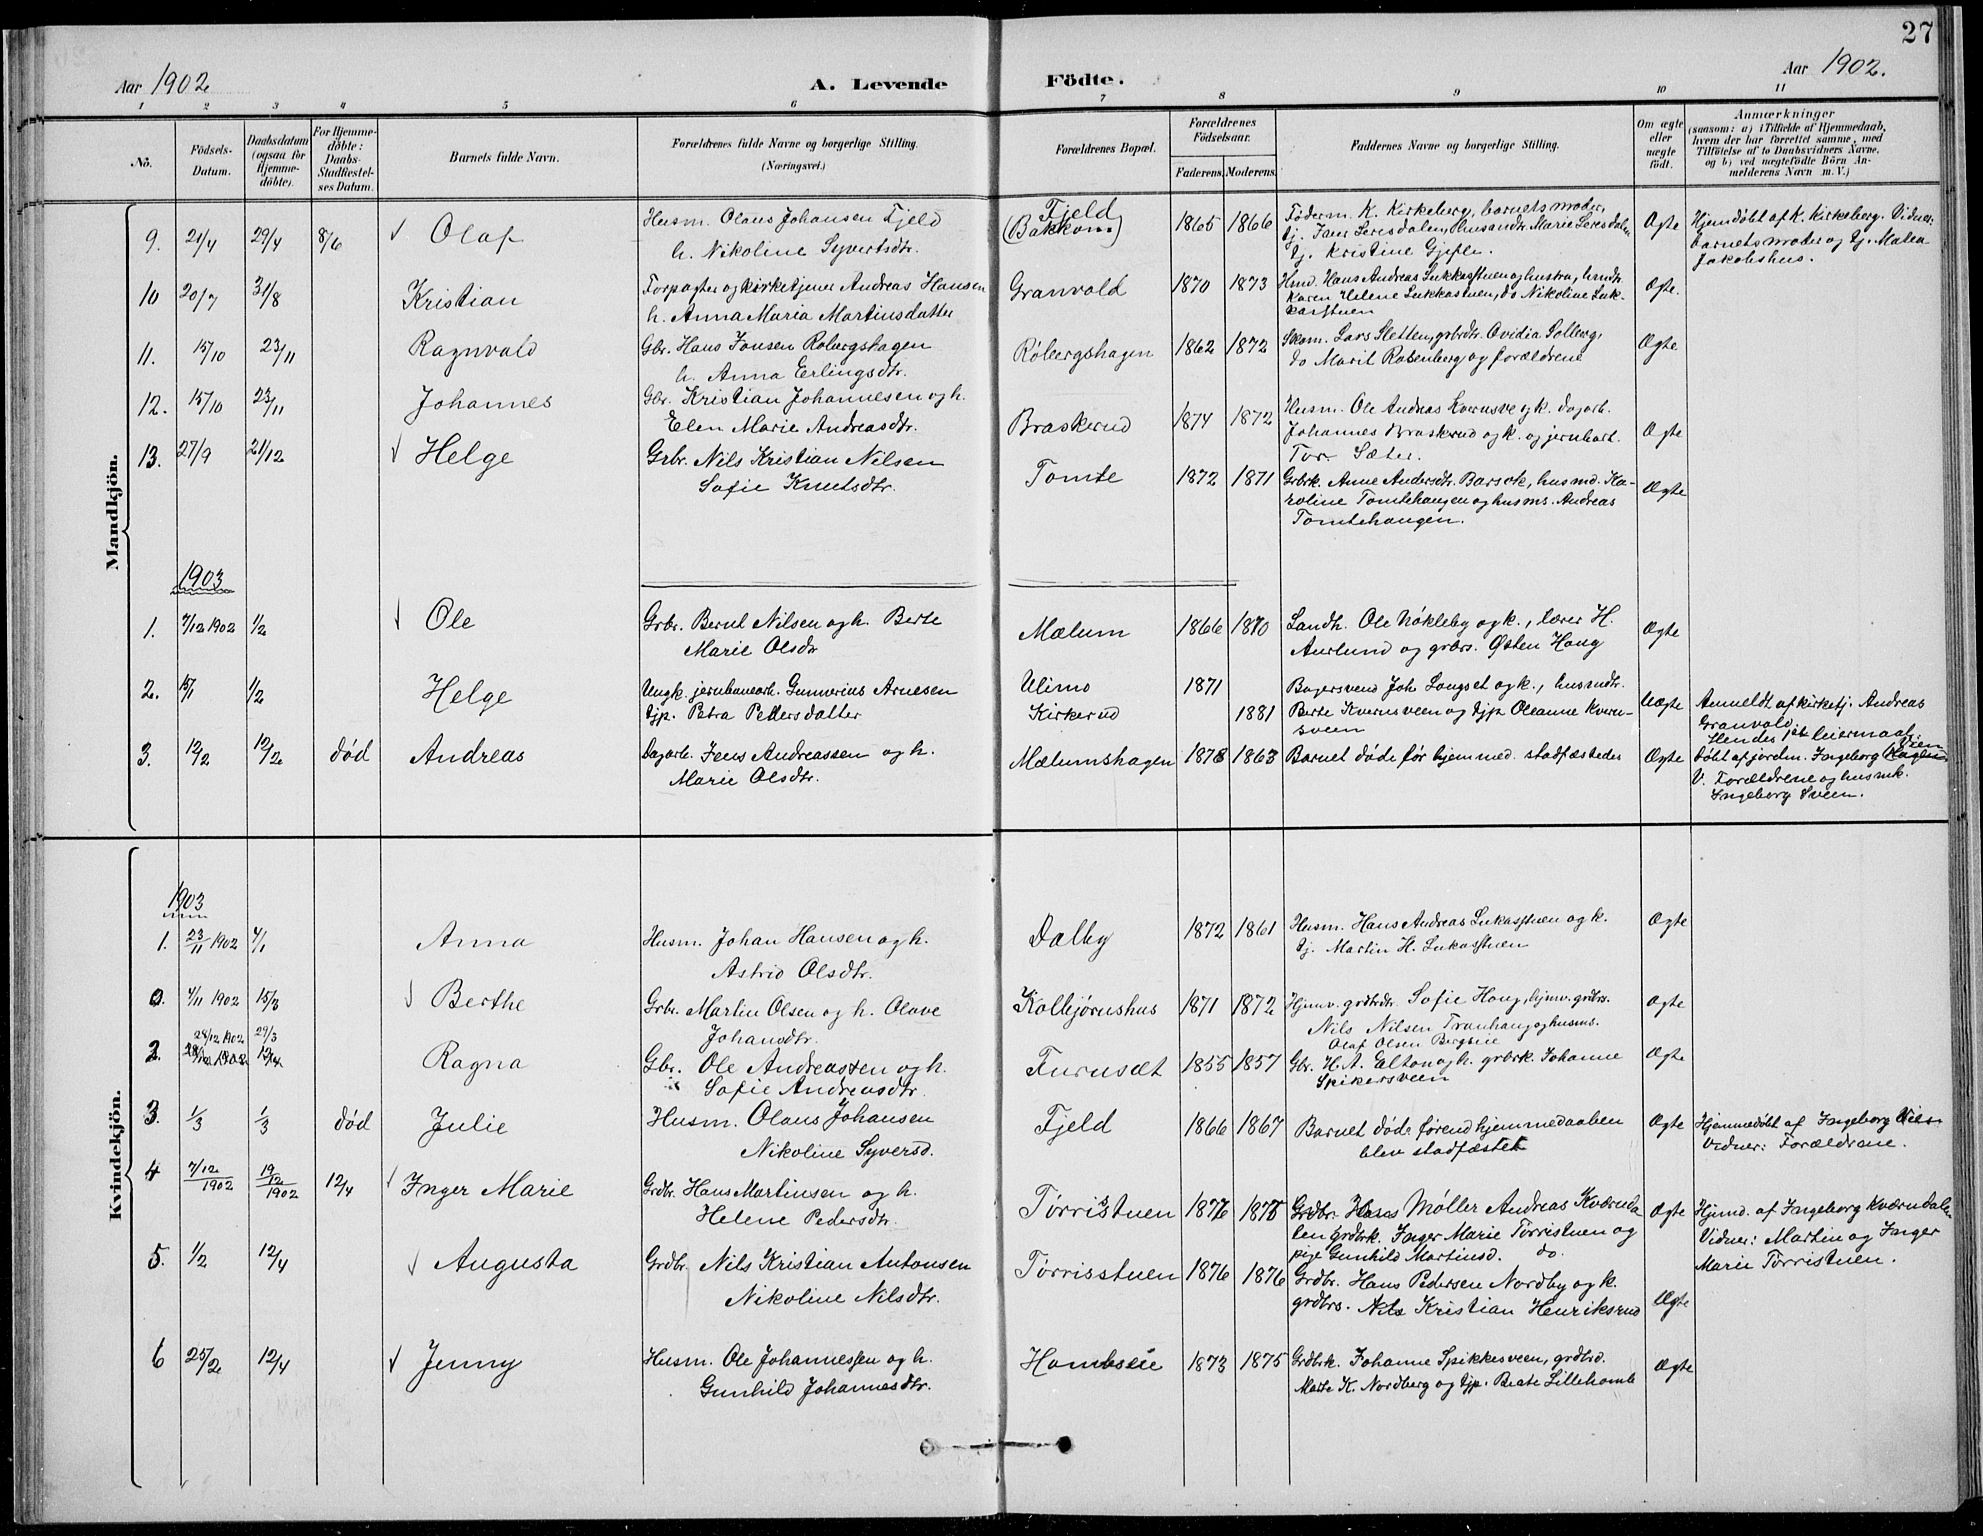 27
Aar 1902
A. Levende Födte.
Aar 1902.
1 2 3 4 5 6 7 8 9 10 11
No.
Födsels-
Datum.
Daabsdatum
(ogsaa for
Hjemme-
döbte).
For Hjemme-
döbte:
Daabs-
Stadfæstel-
ses Datum.
Barnets fulde Navn.
Forældrenes fulde Navne og borgerlige Stilling.
(Næringsvei.)
Forældrenes Bopæl.
Forældrenes
Födselsaar.
Faderens. Moderens.
Faddernes Navne og borgerlige Stilling.
Om ægte
eller
uægte
födt.
Anmærkninger
(saasom: a) i Tilfælde af Hjemmedaab,
hvem der har forrettet samme, med
Tilföielse af to Daabsvidners Navne,
og b) ved uegtefödte Börn An-
melderens Navn m. V.)
Mandkjön.
9. 21/4 29/4 8/6 Olaf
Husm. Olaus Johansen Fjeld
h. Nikoline Syvertsdtr.
Fjeld
(Bakkom)
1865 1866
Föderm. K. Kirkeberg, barnets moder,
tj. Kristine Gjefle.
Ægte
Hjemdøbt af K. Kirkeberg. Vidner:
barnets moder og tj. Malea
Jakobshus.
10 20/7 31/8 Kristian
Forpagter og kirketjener Andreas Hansen
h. Anna Maria Martinsdatter
Granvold
1870 1873
Hmd. Hans Andreas Lukkasstuen og hustru, hmdtr.
Karen Helene Lukkastuen, do Nikoline Luk-
kasstuen
Ægte.
11. 15/10 23/11 Ragnvald
Gbr. Hans Jonsen Robergshagen
h. Anna Erlingsdtr.
Röbergshagen
1862 1872
Skom. Lars Sletten, grbrdtr. Ovidia Solberg,
do Marit Rabenberg og forældrene
Ægte
12. 15/10 23/11 Johannes
Gbr. Kristian Johannesen og h.
Elen Marie Andreasdtr.
Braskerud
1874 1872
Husm. Ole Andreas Kvernsve og k. dagarb.
Johannes Braskerud og k. og jernbarb.
Tor Sæter.
Ægte
13. 27/9 21/12 Helge
Grbr. Nils Kristian Nilsen
Sofie Knutsdtr.
Tomte
1872 1871
Grbrk. Anne Andersdtr. Barsok, husmd. Ka-
roline Tomtehaugen og husms. Andreas
Tomtehaugen.
Ægte
1903
1. 7/12 1902 1/2 Ole
Grbr. Bernt Nilsen og h. Berte
Marie Olsdtr
Mælum
1866 1870
Landh. Ole Nökleby og k., lærer H.
Aurlund og grbrs. Østen Haug
Ægte
2. 15/1 1/2 Helge
Ungk. jernbanearb. Gunnerius Arnesen
tjp. Petra Pedersdatter
Ulimo
Kirkerud
1871
1881
Bagersvend Joh. Longset og k., husmdtr.
Berte Kvernsveen og tjp. Oleanne Kvern-
sveen
Uægte
Anmeldt af kirketj. Andreas
Granvold.
Hendes 1ste leiermaal.
3. 12/2 12/2 død Andreas
Dagarb. Jens Andreassen og h.
Marie Olsdtr.
Mælumshagen
1878 1863
Barnet døde før hjemmed. stadfæstedes
Ægte
døbt af jordm. Ingeborg Vien
V. Forældrene og husmk.
Ingeborg Sveen.
Kvindekjön.
1903
1. 23/11 1902 4/1 Anna
Husm. Johan Hansen og h.
Astrid Olsdtr.
Dalby
1872 1861
Husm. Hans Andreas Lukasstuen og k.
tj. Martin H. Lukasstuen
Ægte
0. 4/11 1902 15/3 Berthe
Grbr. Martin Olsen og h. Olave
Johansdtr.
Kolbjørnshus
1871 1872
Hjemv. grdbrdtr. Sofie Haug, hjmv. grdbrs.
Nils Nilsen Tranhaug og husms.
Olaf Olsen Bergseie
Ægte
2. 28/12 1902 29/3 Ragna
Gbr. Ole Andreassen og h.
Sofie Andreasdtr.
Furusæt
1855 1857
Gbr. H. A. Elton og h. grbrk. Johanne
Spikersveen
Ægte
3. 1/3 1/3 død Julie
Husm. Olaus Johansen
Nikoline Syversd.
Fjeld
1866 1867
Barnet døde førend hjemmedaaben
blev stadfæstet
Ægte
Hjemmedøbt af Ingeborg Vien
Vidner: Forældrene.
4 7/12 1902 19/12 1902 12/4 Inger Marie
Grdbr. Hans Martinsen og h.
Helene Pedersdtr.
Tørristuen
1876 1875
Grdbr. Hans Møller Andreas Kværnda-
len grdbrk. Inger Marie Tørristuen og
pige Gunhild Martinsd. do.
Ægte
Hjmd. af Ingeborg Kværndalen
Vidner: Martin og Inger
Marie Tørristuen.
5. 1/2 12/4 Augusta
Grdbr. Nils Kristian Antonsen
Nikoline Nilsdtr.
Tørrisstuen
1876 1876
Grdbr. Hans Pedersen Nordby og k.
grdbrs. Nils Kristian Henriksrud
Ægte
6 25/2 12/4 Jenny
Husm. Ole Johannessen og h.
Gunhild Johannesdtr.
Hombseie
1873 1875
Grdbrk. Johanne Spikkesveen, grdbrd.
Marte K. Nordberg og tjp. Beate Lillehomb
Ægte